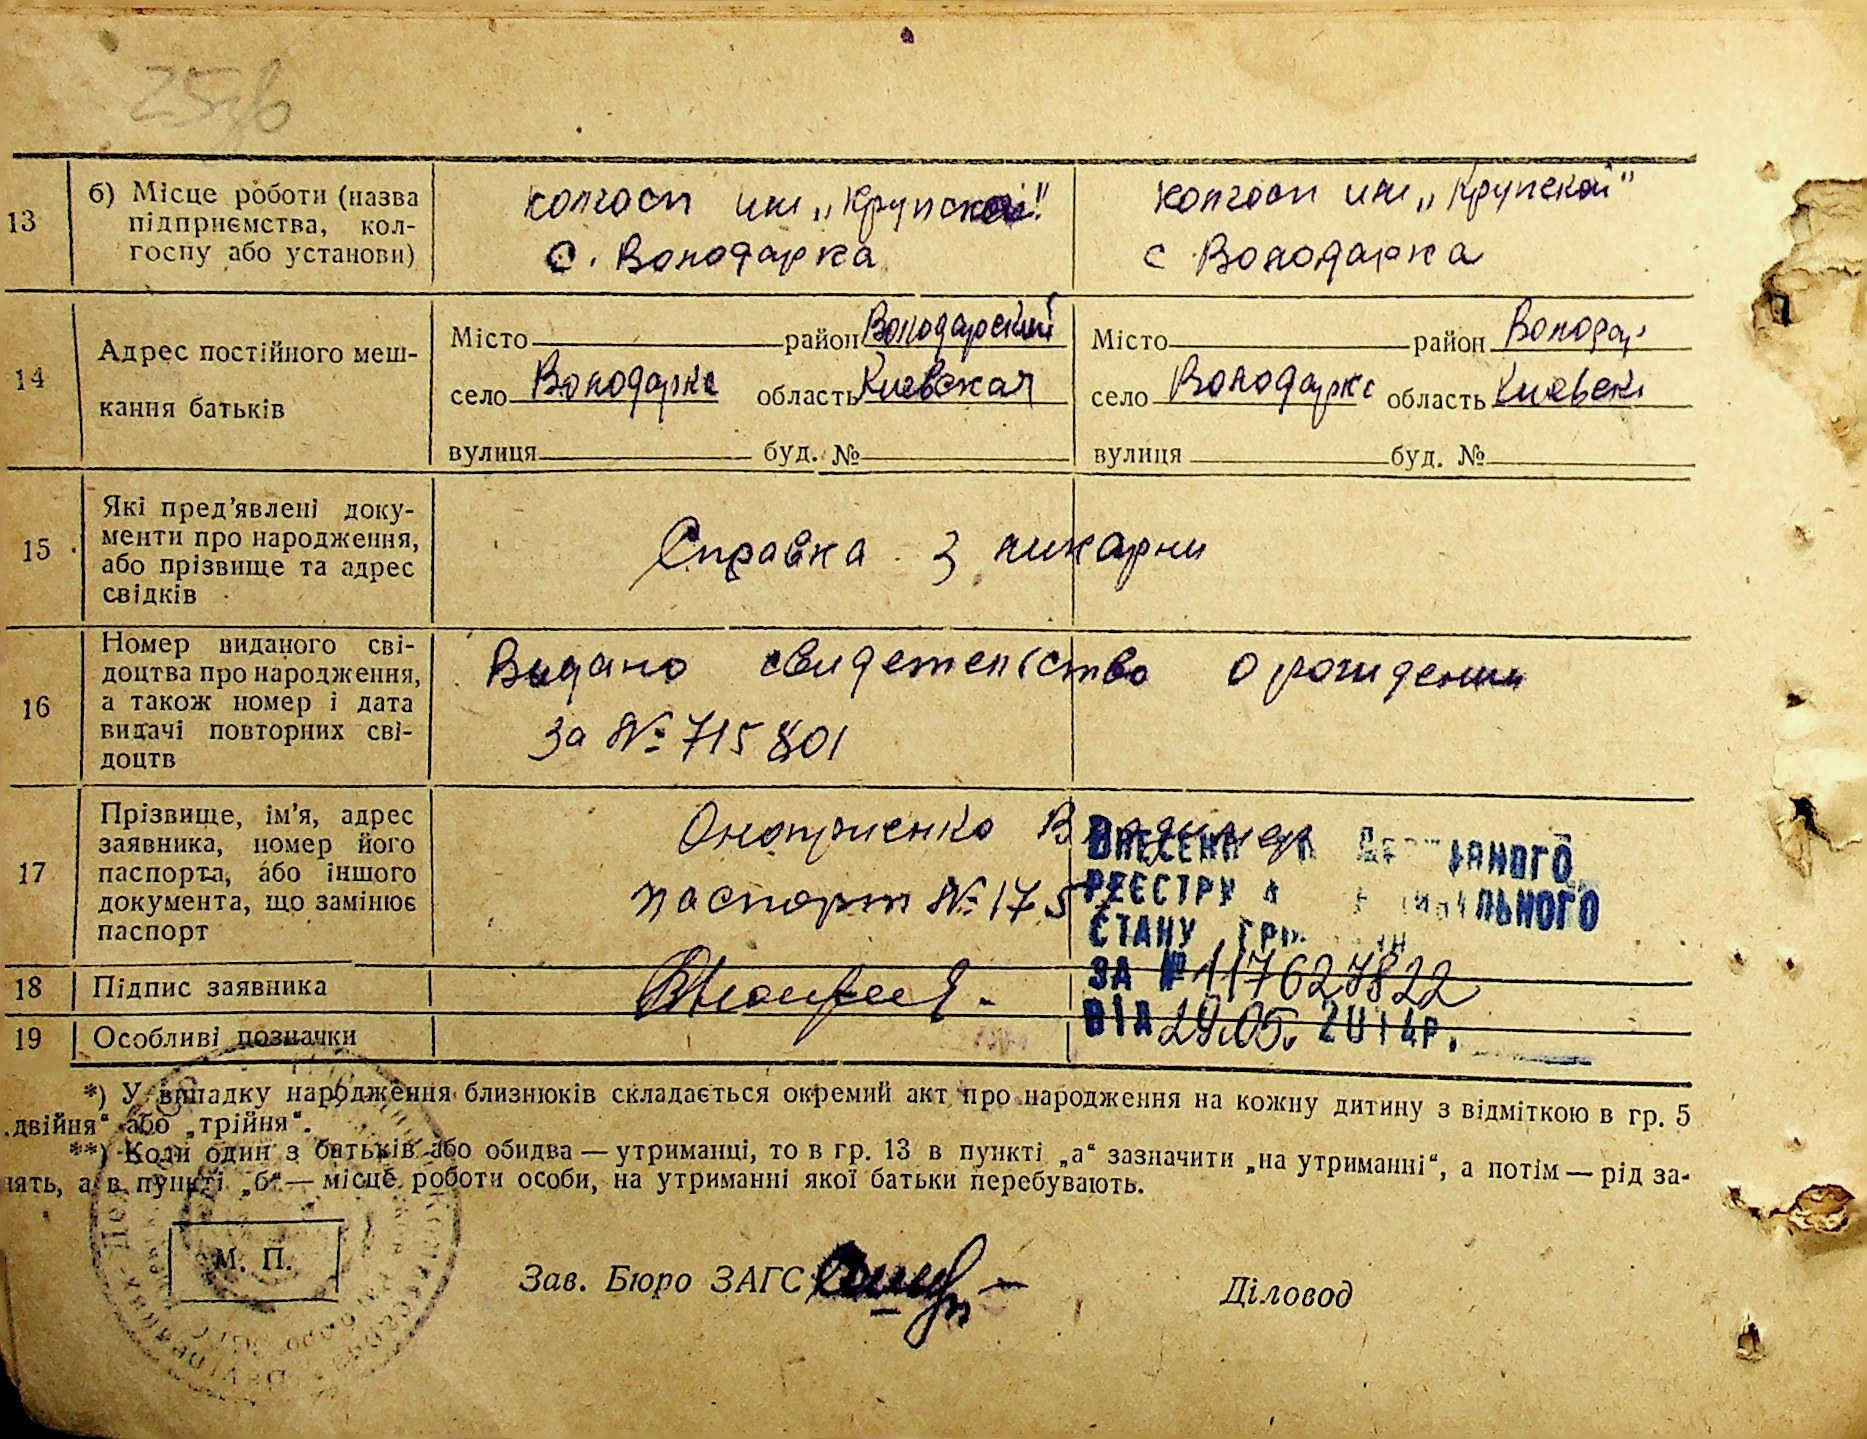 13
б) Місце роботи (назва
підприємства, кол-
госпу або установи)
колгосп им „Крупской"
с. Володарка
колгосп им „Крупской"
с Володарка
14
Адрес постійного меш-
кання батьків
Місто район Володарский
село Володарка область Киевская
вулиця буд. №
Місто район Володар
село Володарка область Киевск
вулиця буд. №
15
Які пред'явлені доку-
менти про народження,
або прізвище та адрес
свідків
Справка з ликарни
16
Номер виданого сві-
доцтва про народження,
а також номер і дата
видачі повторних сві-
доцтв
Видано свидетельство о рождении
за № 715801
17
Прізвище, ім'я, адрес
заявника, номер його
паспорта, або іншого
документа, що замінює
паспорт
Владимир
паспорт № 175
ВНЕСЕНО ДЕРЖАВНОГО
РЕЄСТРУ АКТІВ ЦИВІЛЬНОГО
СТАНУ ГРОМАДЯН
ЗА № 117627822
ВІД 29.05. 2014р.
18
Підпис заявника
19
Особливі позначки
*) У випадку народження близнюків складається окремий акт про народження на кожну дитину з відміткою в гр. 5
„двійня“ або „трійня“.
**) Коли один з батьків або обидва — утриманці, то в гр. 13 в пункті „а“ зазначити „на утриманні“, а потім — рід за-
нять, а в пункті „б“ — місце роботи особи, на утриманні якої батьки перебувають.
М. П.
Зав. Бюро ЗАГС
Діловод